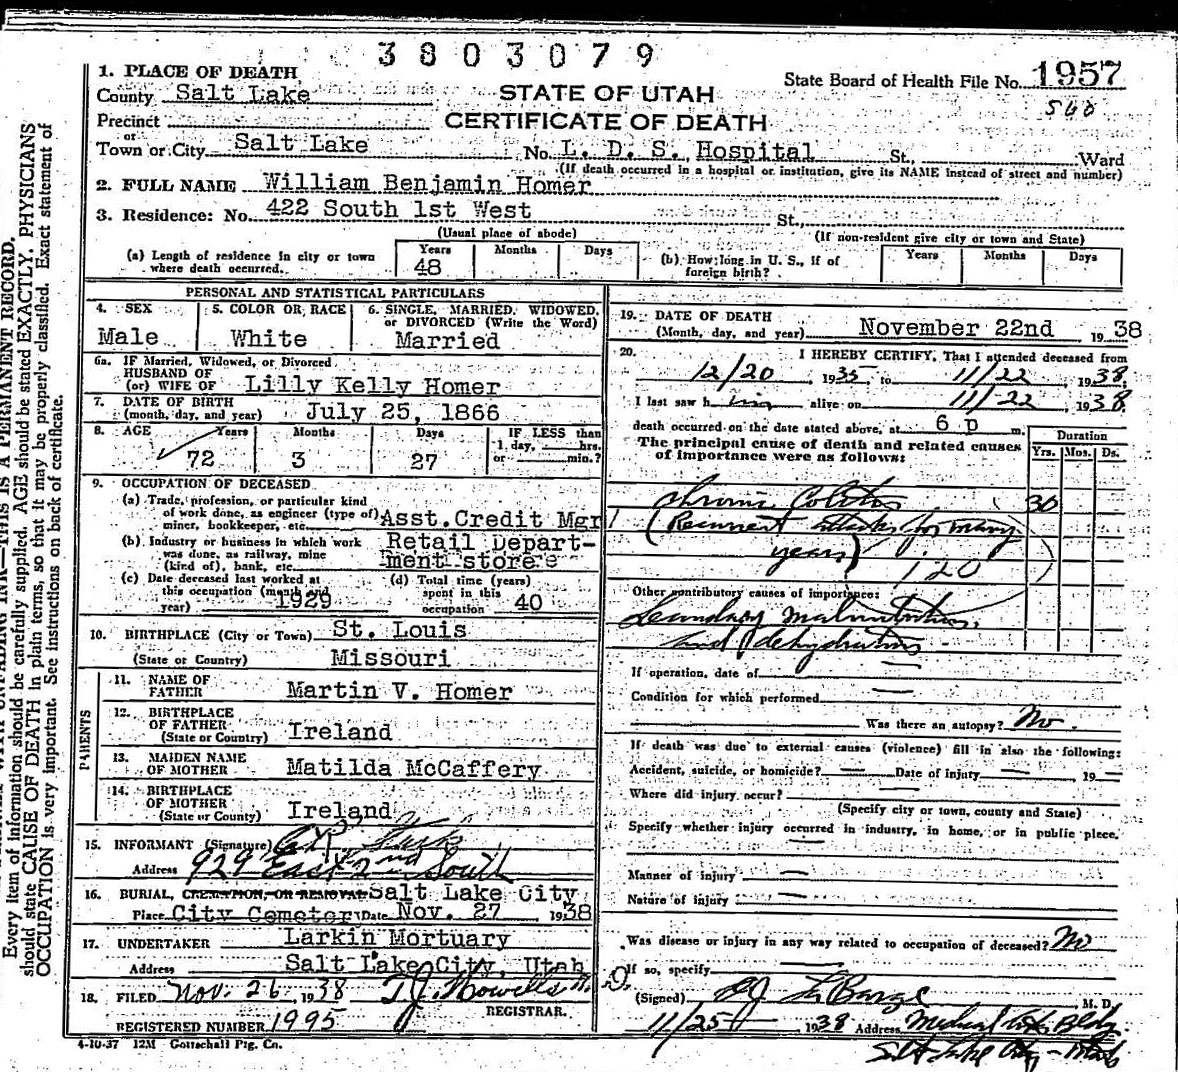 3803079
1. PLACE OF DEATH
State Board of Health File No. 1957
County Salt Lake
STATE OF UTAH
560
Precinct
CERTIFICATE OF DEATH
or
Town or City Salt Lake No. L. D. S. Hospital St., Ward
(If death occurred in a hospital or institution, give its NAME instead of street and number)
2. FULL NAME William Benjamin Homer
3. Residence: No. 422 South 1st West St.,
(Usual place of abode) (If non-resident give city or town and State)
(a) Length of residence in city or town where death occurred. Years 48 Months Days
(b) How long in U. S., if of foreign birth? Years Months Days
PERSONAL AND STATISTICAL PARTICULARS
4. SEX Male
5. COLOR OR RACE White
6. SINGLE, MARRIED, WIDOWED, or DIVORCED (Write the Word) Married
6a. IF Married, Widowed, or Divorced
HUSBAND OF
(or) WIFE OF Lilly Kelly Homer
7. DATE OF BIRTH
(month, day, and year) July 25, 1866
8. AGE Years 72 Months 3 Days 27
IF LESS than
1 day, hrs.
or min.?
9. OCCUPATION OF DECEASED
(a) Trade, profession, or particular kind
of work done, as engineer (type of)
miner, bookkeeper, etc. Asst. Credit Mgr
(b) Industry or business in which work
was done, as railway, mine
(kind of), bank, etc. Retail Depart-
ment store
(c) Date deceased last worked at
this occupation (month and
year) 1929
(d) Total time (years)
spent in this
occupation 40
10. BIRTHPLACE (City or Town) St. Louis
(State or Country) Missouri
PARENTS
11. NAME OF
FATHER Martin V. Homer
12. BIRTHPLACE
OF FATHER
(State or Country) Ireland
13. MAIDEN NAME
OF MOTHER Matilda McCaffery
14. BIRTHPLACE
OF MOTHER
(State or County) Ireland
15. INFORMANT (Signature)
Address 929 East 2nd South
16. BURIAL, CREMATION, OR REMOVAL Salt Lake City
Place City Cemeter Date Nov. 27 1938
17. UNDERTAKER Larkin Mortuary
Address Salt Lake City, Utah
18. FILED Nov. 26, 1938 T. J. Howells
REGISTRAR.
REGISTERED NUMBER 1995
4-10-37 12M Gottschall Ptg. Co.
19. DATE OF DEATH
(Month, day, and year) November 22nd 1938
20. I HEREBY CERTIFY, That I attended deceased from
12/20, 1935, to 11/22, 1938,
I last saw him alive on 11/22, 1938
death occurred on the date stated above, at 6 p m.
The principal cause of death and related causes
of importance were as follows:
Duration
Yrs. Mos. Ds.
Chronic Colitis 30
(Recurrent attacks for many
years)
120
Other contributory causes of importance:
Secondary malnutrition
and dehydration
If operation, date of
Condition for which performed
Was there an autopsy? No.
If death was due to external causes (violence) fill in also the following:
Accident, suicide, or homicide? Date of injury 19
Where did injury occur?
(Specify city or town, county and State)
Specify whether injury occurred in industry, in home, or in public place.
Manner of injury
Nature of injury
Was disease or injury in any way related to occupation of deceased? No
If so, specify
(Signed) LaBarge M. D.
11/25 1938 Address Medical Arts Bldg.
Salt Lake City - Utah
Every item of information should be carefully supplied. AGE should be stated EXACTLY. PHYSICIANS
should state CAUSE OF DEATH in plain terms, so that it may be properly classified. Exact statement of
OCCUPATION is very important. See instructions on back of certificate.
UNFADING INK—THIS IS A PERMANENT RECORD.